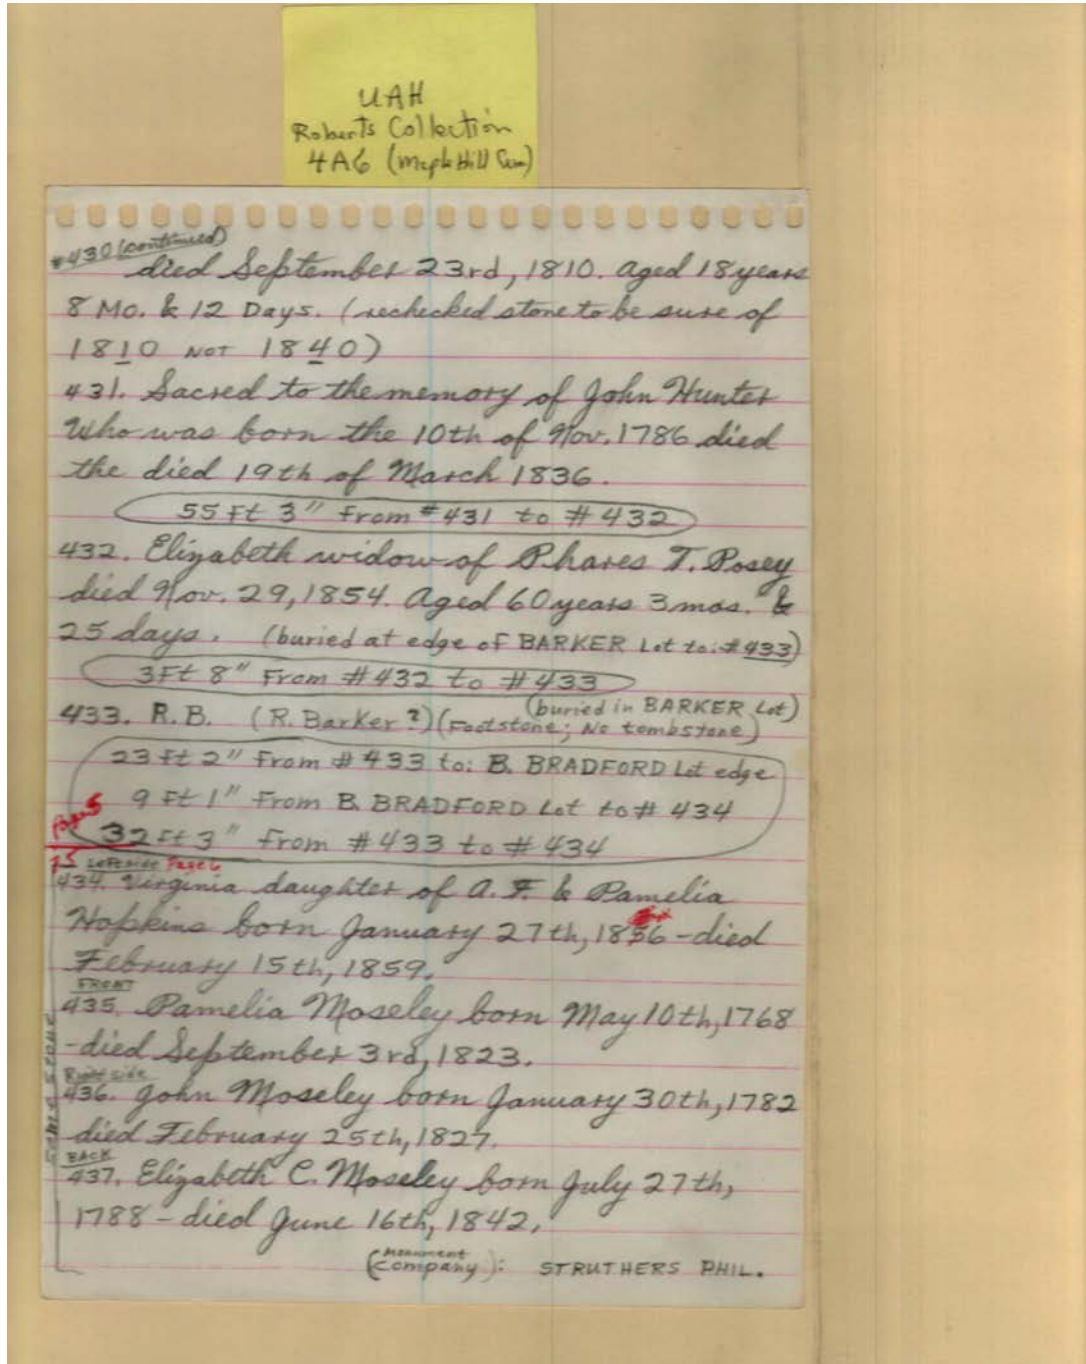 UAH
Roberts Collection
4A6 (Maple Hill Cem)
#430 (continued)
died September 23rd, 1810. Aged 18 years
8 Mo. & 12 Days. (rechecked stone to be sure of
1810 NOT 1840)
431. Sacred to the memory of John Hunter
Who was born the 10th of Nov. 1786 died
the died 19th of March 1836.
55 Ft 3" From #431 to #432
432. Elizabeth widow of Phares T. Posey
died Nov. 29, 1854. Aged 60 years 3 mos. &
25 days. (buried at edge of BARKER Lot to: #433)
3 Ft 8" From #432 to #433
(buried in BARKER Lot)
433. R.B. (R. Barker?) (Footstone; No tombstone)
23 Ft 2" From #433 to: B. BRADFORD Lot edge
9 Ft 1" From B. BRADFORD Lot to #434
Page 5
32 Ft 3" From #433 to #434
Left side Page 6
434. Virginia daughter of A. F. & Pamelia
Hopkins born January 27th, 1856 - died
February 15th, 1859.
FRONT
435. Pamelia Moseley born May 10th, 1768
- died September 3rd, 1823.
Right side
436. John Moseley born January 30th, 1782
died February 25th, 1827.
BACK
437. Elizabeth C. Moseley born July 27th,
1788 - died June 16th, 1842.
SAME STONE
(Monument
Company): STRUTHERS PHIL.